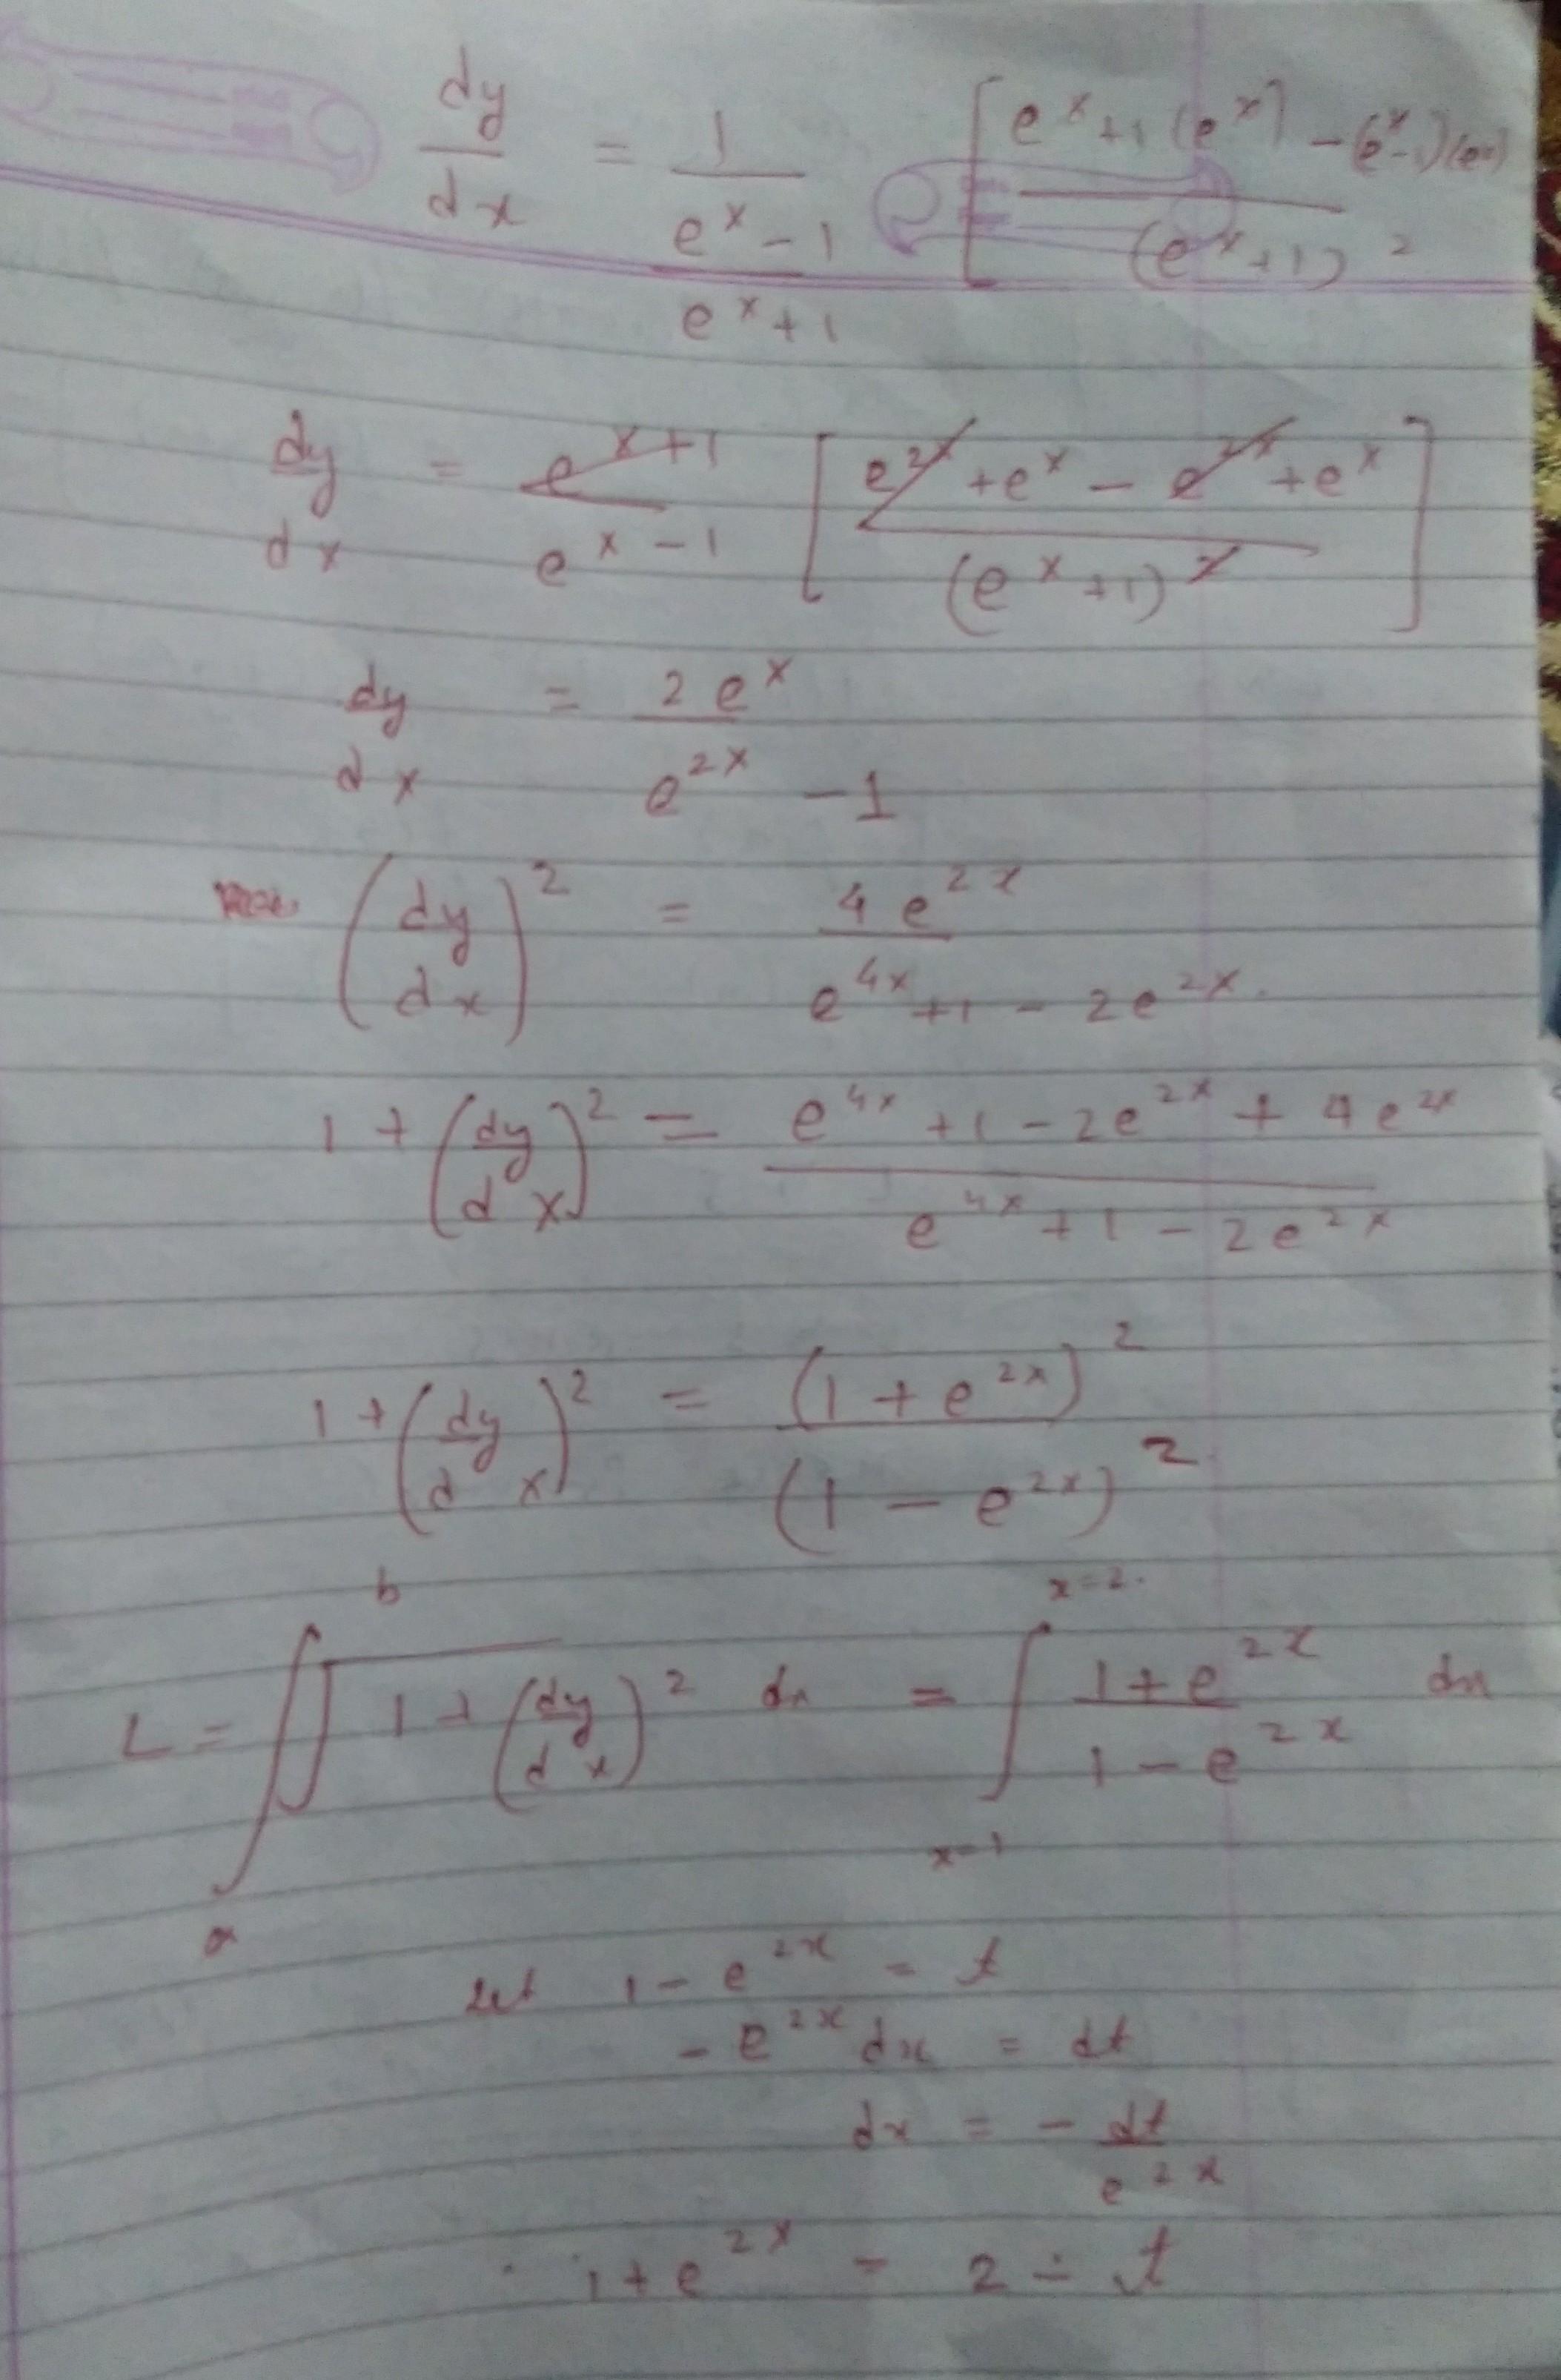 dy/dx = 1/((e^x - 1)/(e^x + 1)) [(e^x + 1 (e^x) - (e^x - 1)(e^x))/(e^x + 1)^2
dy/dx = (e^x + 1)/(e^x - 1) [(e^2x + e^x - e^2x + e^x)/(e^x + 1)^2]
dy/dx = 2e^x/(e^2x - 1)
(dy/dx)^2 = 4e^2x/(e^4x + 1 - 2e^2x).
1 + (dy/dx)^2 = (e^4x + 1 - 2e^2x + 4e^2x)/(e^4x + 1 - 2e^2x)
1 + (dy/dx)^2 = (1 + e^2x)^2/(1 - e^2x)^2
L = ∫_a^b √(1 + (dy/dx)^2) dx = ∫_{x=1}^{x=2} (1 + e^2x)/(1 - e^2x) dx
Let 1 - e^2x = t
- e^2x dx = dt
dx = - dt/e^2x
1 + e^2x = 2 - t